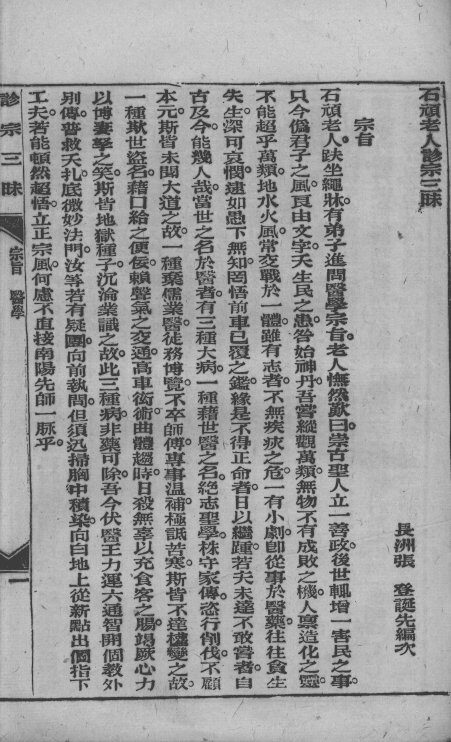 石頑老人診宗三昧
長洲張　登誕先編次
宗旨
石頑老人趺坐繩牀有弟子進問醫學宗旨老人憮然歎曰崇古聖人立一善政後世輒增一害民之事
只今偽君子之風良由文字天生民之患咎始神丹吾嘗縱觀萬類無物不有成敗之機人稟造化之靈
不能超乎萬類地水火風常交戰於一體雖有志者不無疾疢之危一有小劇即從事於醫藥往往貪生
失生深可哀憫逮如愚下無知罔悟前車已覆之鑑緣是不得正命者日以繼踵若夫未達不敢嘗者自
古及今能幾人哉當世之名於醫者有三種大病一種藉世醫之名絕志聖學株守家傳恣行削伐不顧
本元斯皆未聞大道之故一種棄儒業醫徒務博覽不卒師傳專事溫補極詆苦寒斯皆不達權變之故
一種欺世盜名藉口給之便佞賴聲氣之交通高車衒術曲體趨時日殺無辜以充食客之腸竭厥心力
以博妻孥之笑斯皆地獄種子沉淪業識之故此三種病非藥可除吾今伏醫王力運六通智開個教外
別傳普救天札底微妙法門汝等若有疑團向前執問但須迅掃胸中積染向白地上從新點出個指下
工夫若能頓然超悟立正宗風何慮不直接南陽先師一脈乎
診宗三昧
宗旨　醫學
一